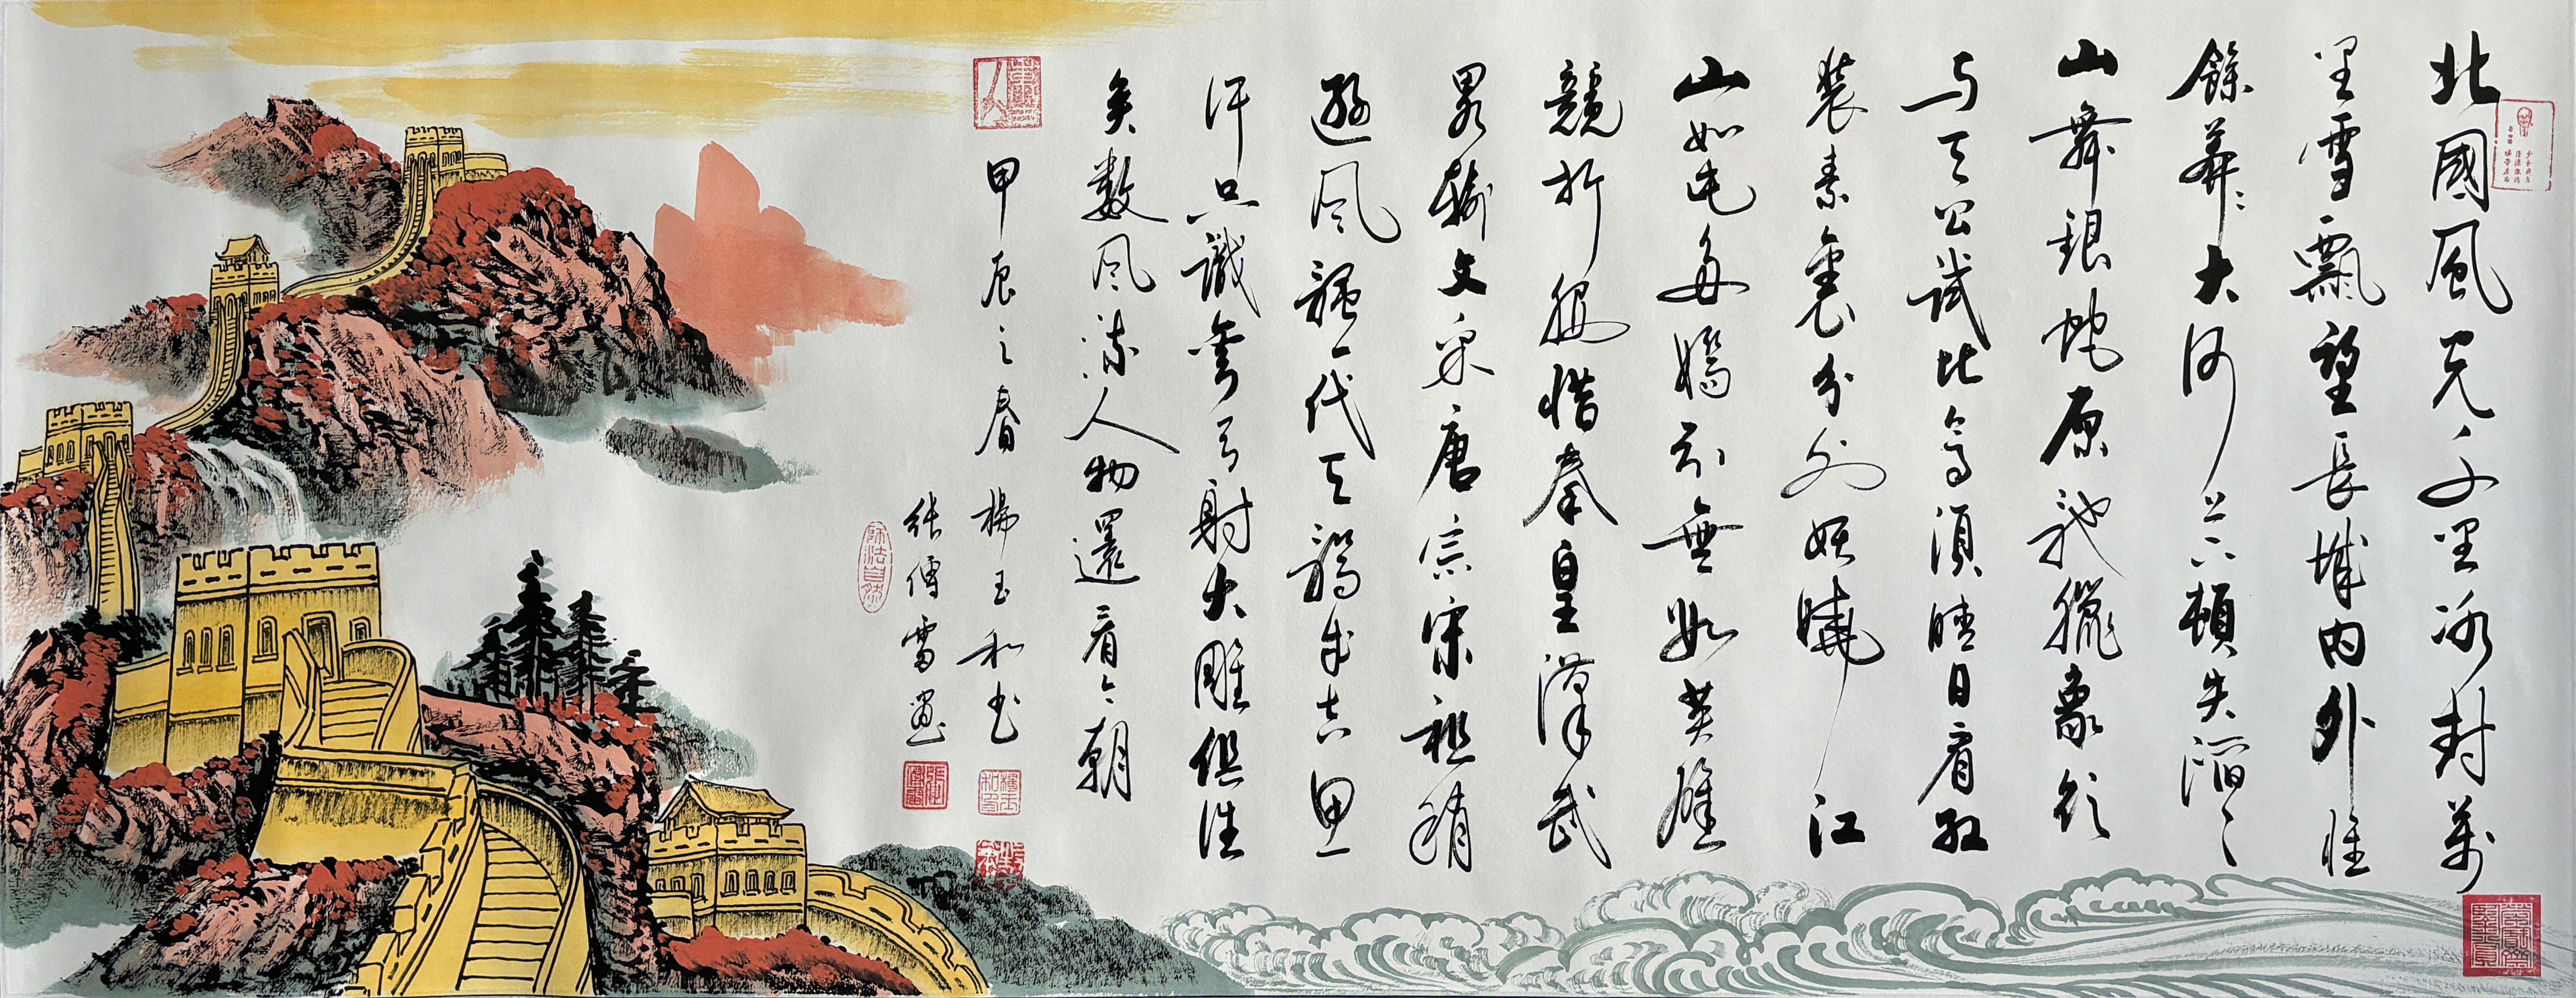 北國風光千里冰封萬
里雪飄望長城內外惟
餘莽〻大河上下頓失滔〻
山舞銀蛇原馳臘象欲
与天公試比高須晴日看紅
裝素裹分外妖嬈江
山如此多嬌引無數英雄
競折腰惜秦皇漢武
畧輸文采唐宗宋祖稍
遜風騷一代天驕成吉思
汗只識彎弓射大雕俱往
矣數風流人物還看今朝
甲辰之春 楊玉和书
張傳雷畫
師法自然